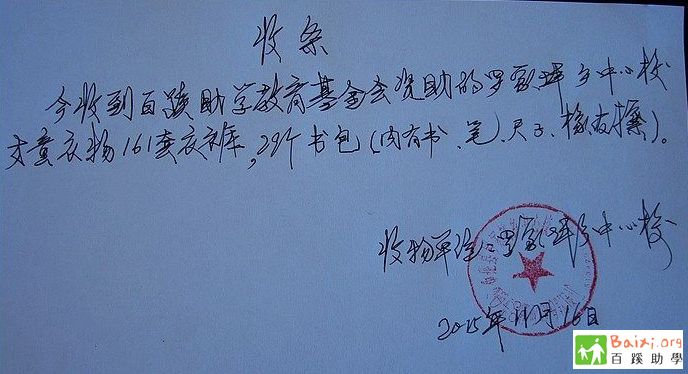 收条
今收到百蹊助学教育基金会资助的罗家坪乡中心校
儿童衣物161套衣裤，29个书包（内有书、笔、尺子、橡皮擦）。
收物单位 罗家坪乡中心校
2015年11月16日
Baixi.org
百蹊助學